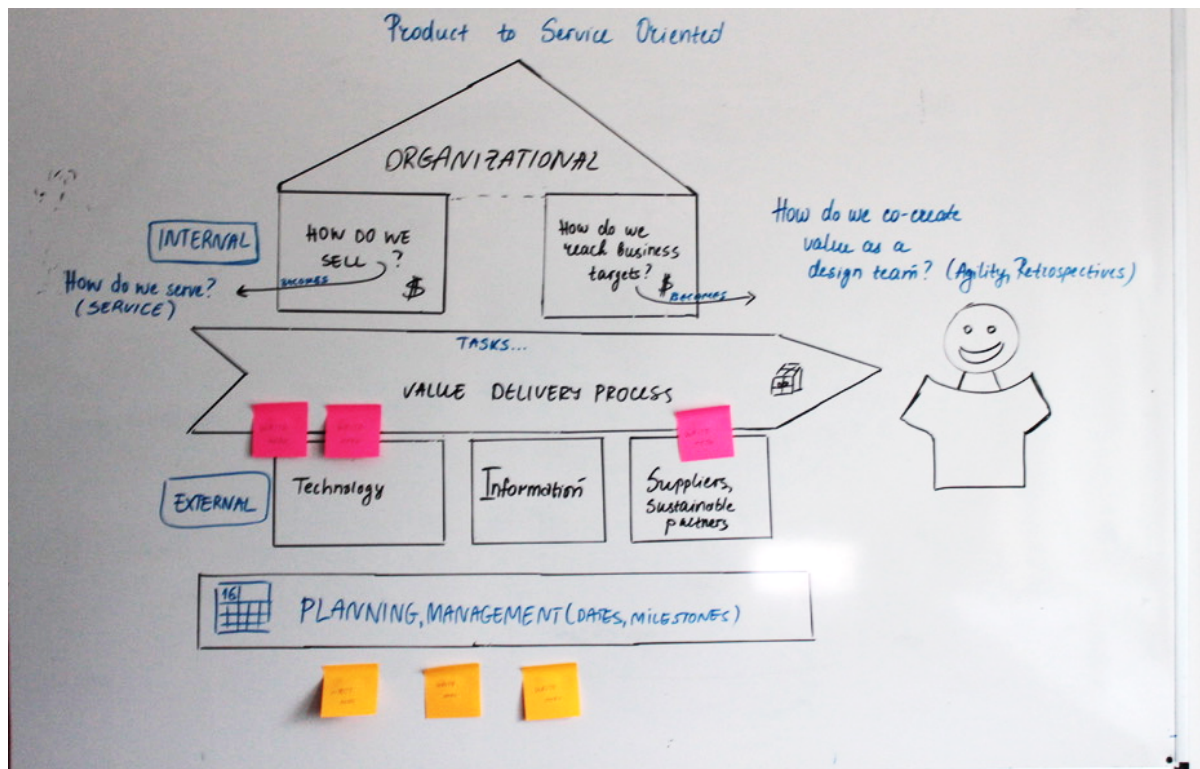 Product to Service Oriented
ORGANIZATIONAL
INTERNAL
HOW DO WE
SELL ?
$
BECOMES
How do we serve?
(SERVICE)
How do we
reach business
targets?
$
BECOMES
How do we co-create
value as a
design team? (Agility, Retrospectives)
TASKS...
VALUE DELIVERY PROCESS
EXTERNAL
Technology
Information
Suppliers,
sustainable
partners
16
PLANNING, MANAGEMENT (DATES, MILESTONES)